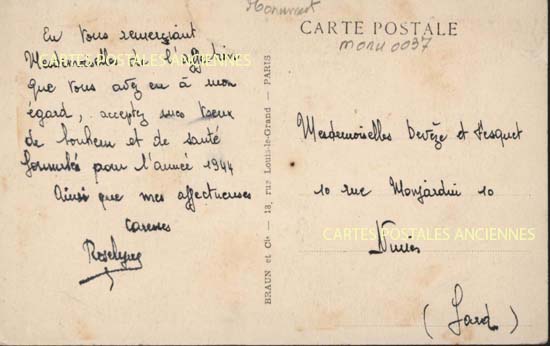 Monument
CARTE POSTALE
MONU 0037
En vous remerciant
Mesdemoiselles de l'
que vous avez eu à mon
égard, acceptez mes vœux
de bonheur et de santé
formulés pour l'année 1944
Ainsi que mes affectueuses
caresses
Roselyne
BRAUN et Cie — 18, rue Louis-le-Grand — PARIS
Mesdemoiselles Devèze et
10 rue Monjardin 10
Nîmes
(Gard)
CARTES POSTALES ANCIENNES
CARTES POSTALES ANCIENNES